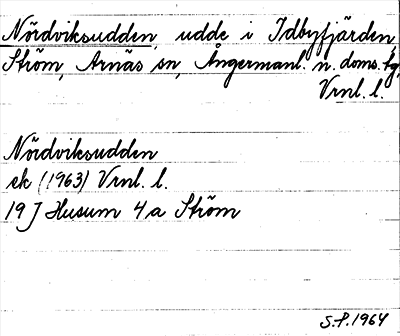 Nördviksudden, udde i Idbyfjärden,
Ström, Arnäs sn, Ångermanl. n. doms.bg,
Vrnl. l.
Nördviksudden
ek (1963) Vrnl. l.
19 J Husum 4 a Ström
S.P. 1964